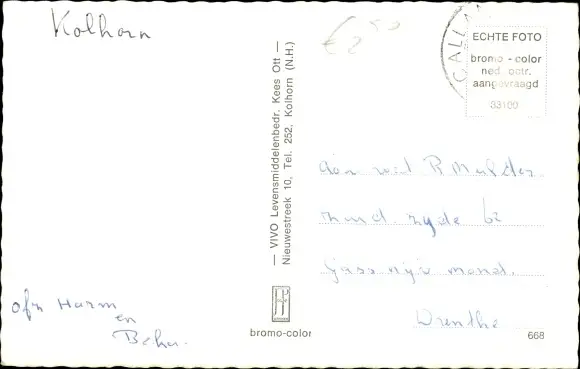 Kolhorn
€ 2,50
CALLAN
ECHTE FOTO
bromo-color
ned. octr.
aangevraagd
33100
— VIVO Levensmiddelenbedr. Kees Ott —
Nieuwestreek 10, Tel. 252, Kolhorn (N.H.)
Aan R Mulder
zyde 62
Drenthe
Harm
en
bromo-color
668